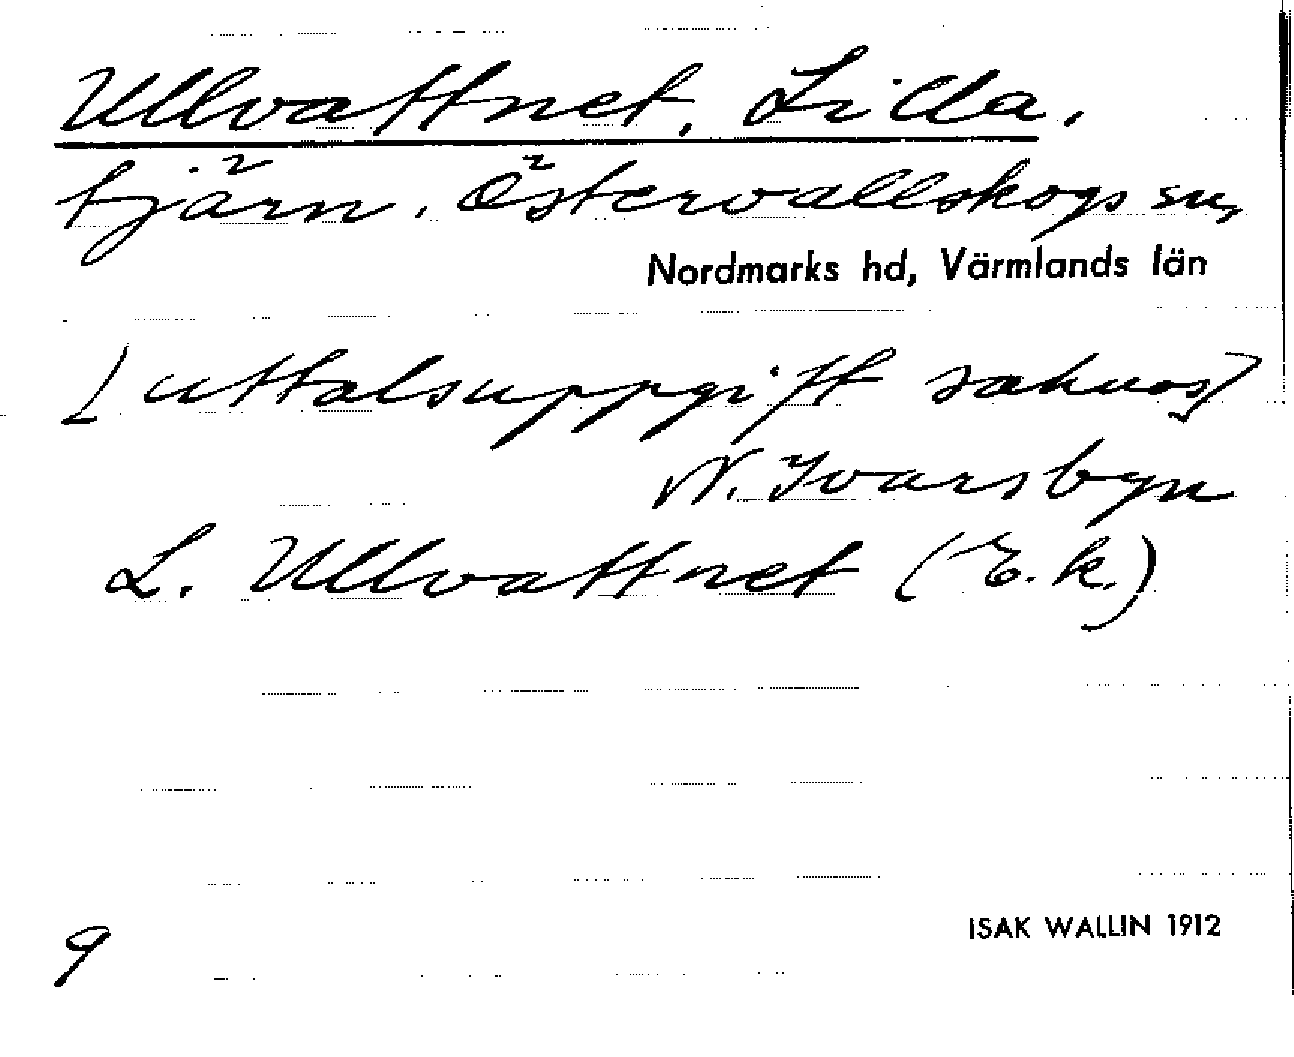 Ullvattnet, Lilla,
tjärn, Östervallskogs sn,
Nordmarks hd, Värmlands län
[uttalsuppgift saknas]
N. Ivarsbyn
L. Ullvattnet (E.k.)
9
ISAK WALLIN 1912